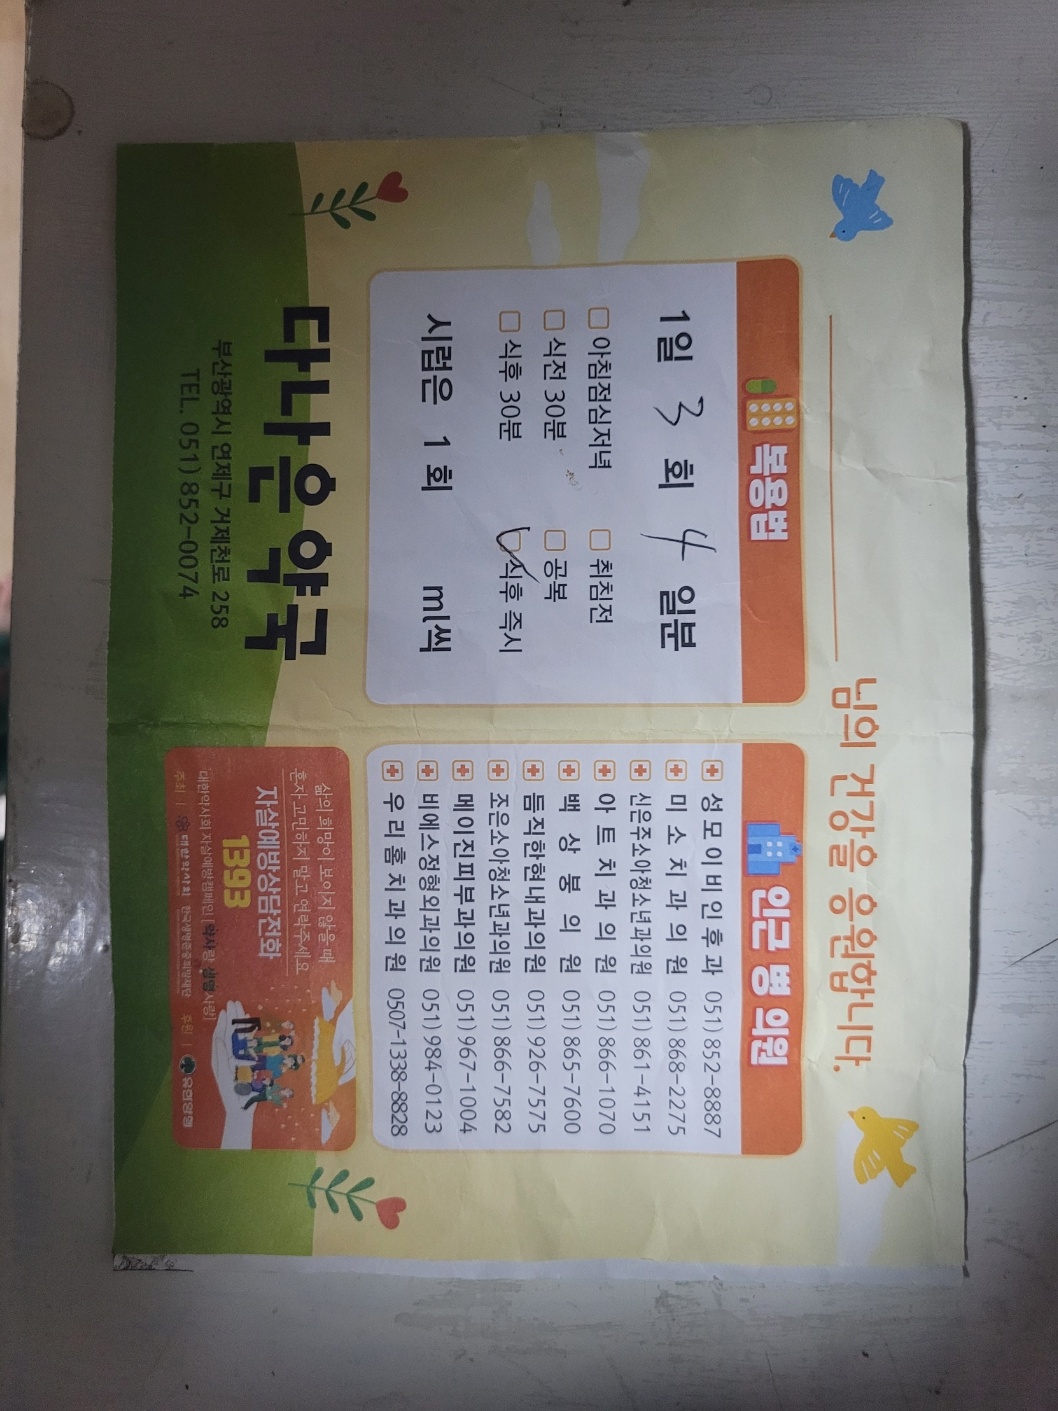 님의 건강을 응원합니다.
복용법
1일 3 회 4 일분
아침점심저녁 취침전
식전 30분 공복
식후 30분 식후 즉시
시럽은 1 회 ml씩
인근 병 의원
성모이비인후과 051)852-8887
미소치과의원 051)868-2275
신은주소아청소년과의원 051)861-4151
아트치과의원 051)866-1070
백상봉의원 051)865-7600
듬직한현내과의원 051)926-7575
조은소아청소년과의원 051)866-7582
메이진피부과의원 051)967-1004
비에스정형외과의원 051)984-0123
우리홈치과의원 0507-1338-8828
다나은약국
부산광역시 연제구 거제천로 258
TEL. 051)852-0074
삶의 희망이 보이지 않을 때
혼자 고민하지 말고 연락주세요
자살예방상담전화
1393
대한약사회 자살예방캠페인 [약사랑 생명사랑]
주최 | 대한약사회 한국생명운동희망재단 후원 | 유한양행